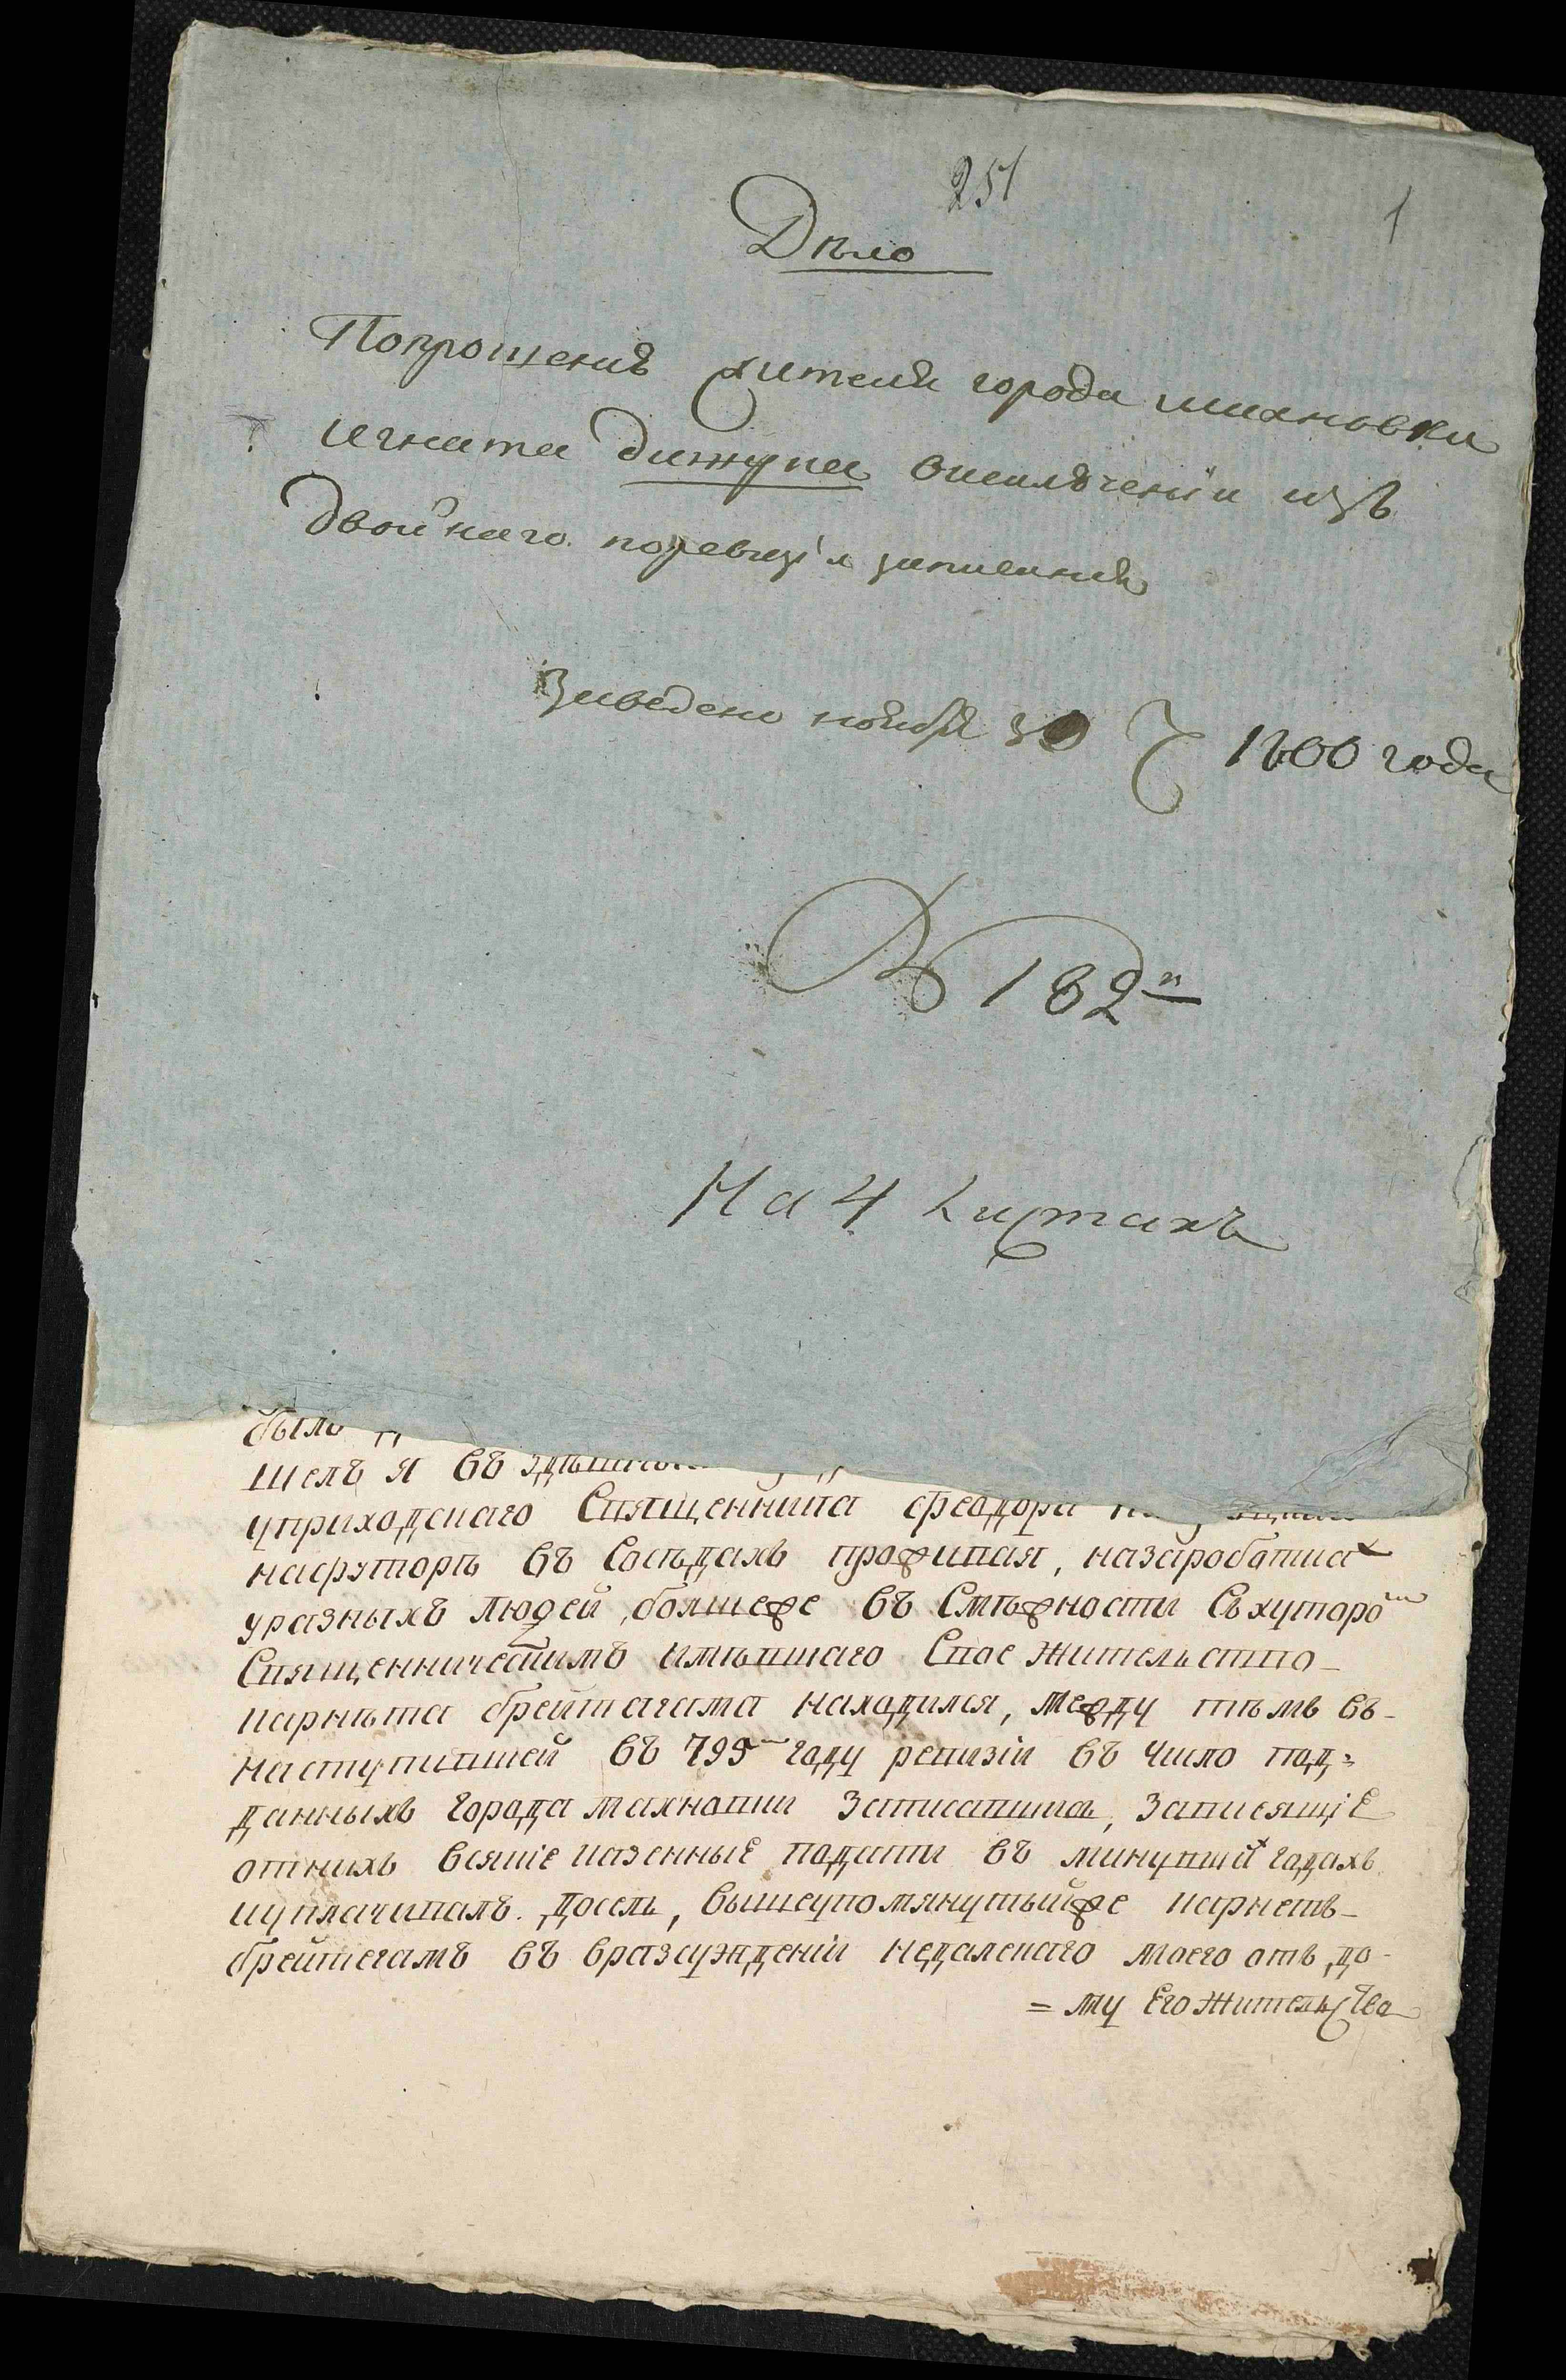 251
1
Дѣло
Попрошению жителя города махновки
игната дижука
двойнаго поревизіи записания
Заведено ноября 30 Ч 1800 года
№ 182
На 4 листахъ
было
шелъ я въ
уприходскаго Священника феодора
нафуторѣ въ Сосѣдахъ проживая, назаработках
уразныхъ людей, болшеже въ Смѣжности Съхуторо
Священническимъ имѣвшаго Свое жительство
карнѣта брейтагама находился, между тѣмъ въ-
наступившей въ 795 году ревизіи въ число под=
данныхъ города махновки записавшись, записящіе
отнихъ всякіе казенные подати въ минувших годахъ
иуплачивалъ. доселѣ, вышеупомянутыйже карнетъ-
брейтегамъ въ вразсужденіи недалекаго моего отъ до-
= му Его жительства